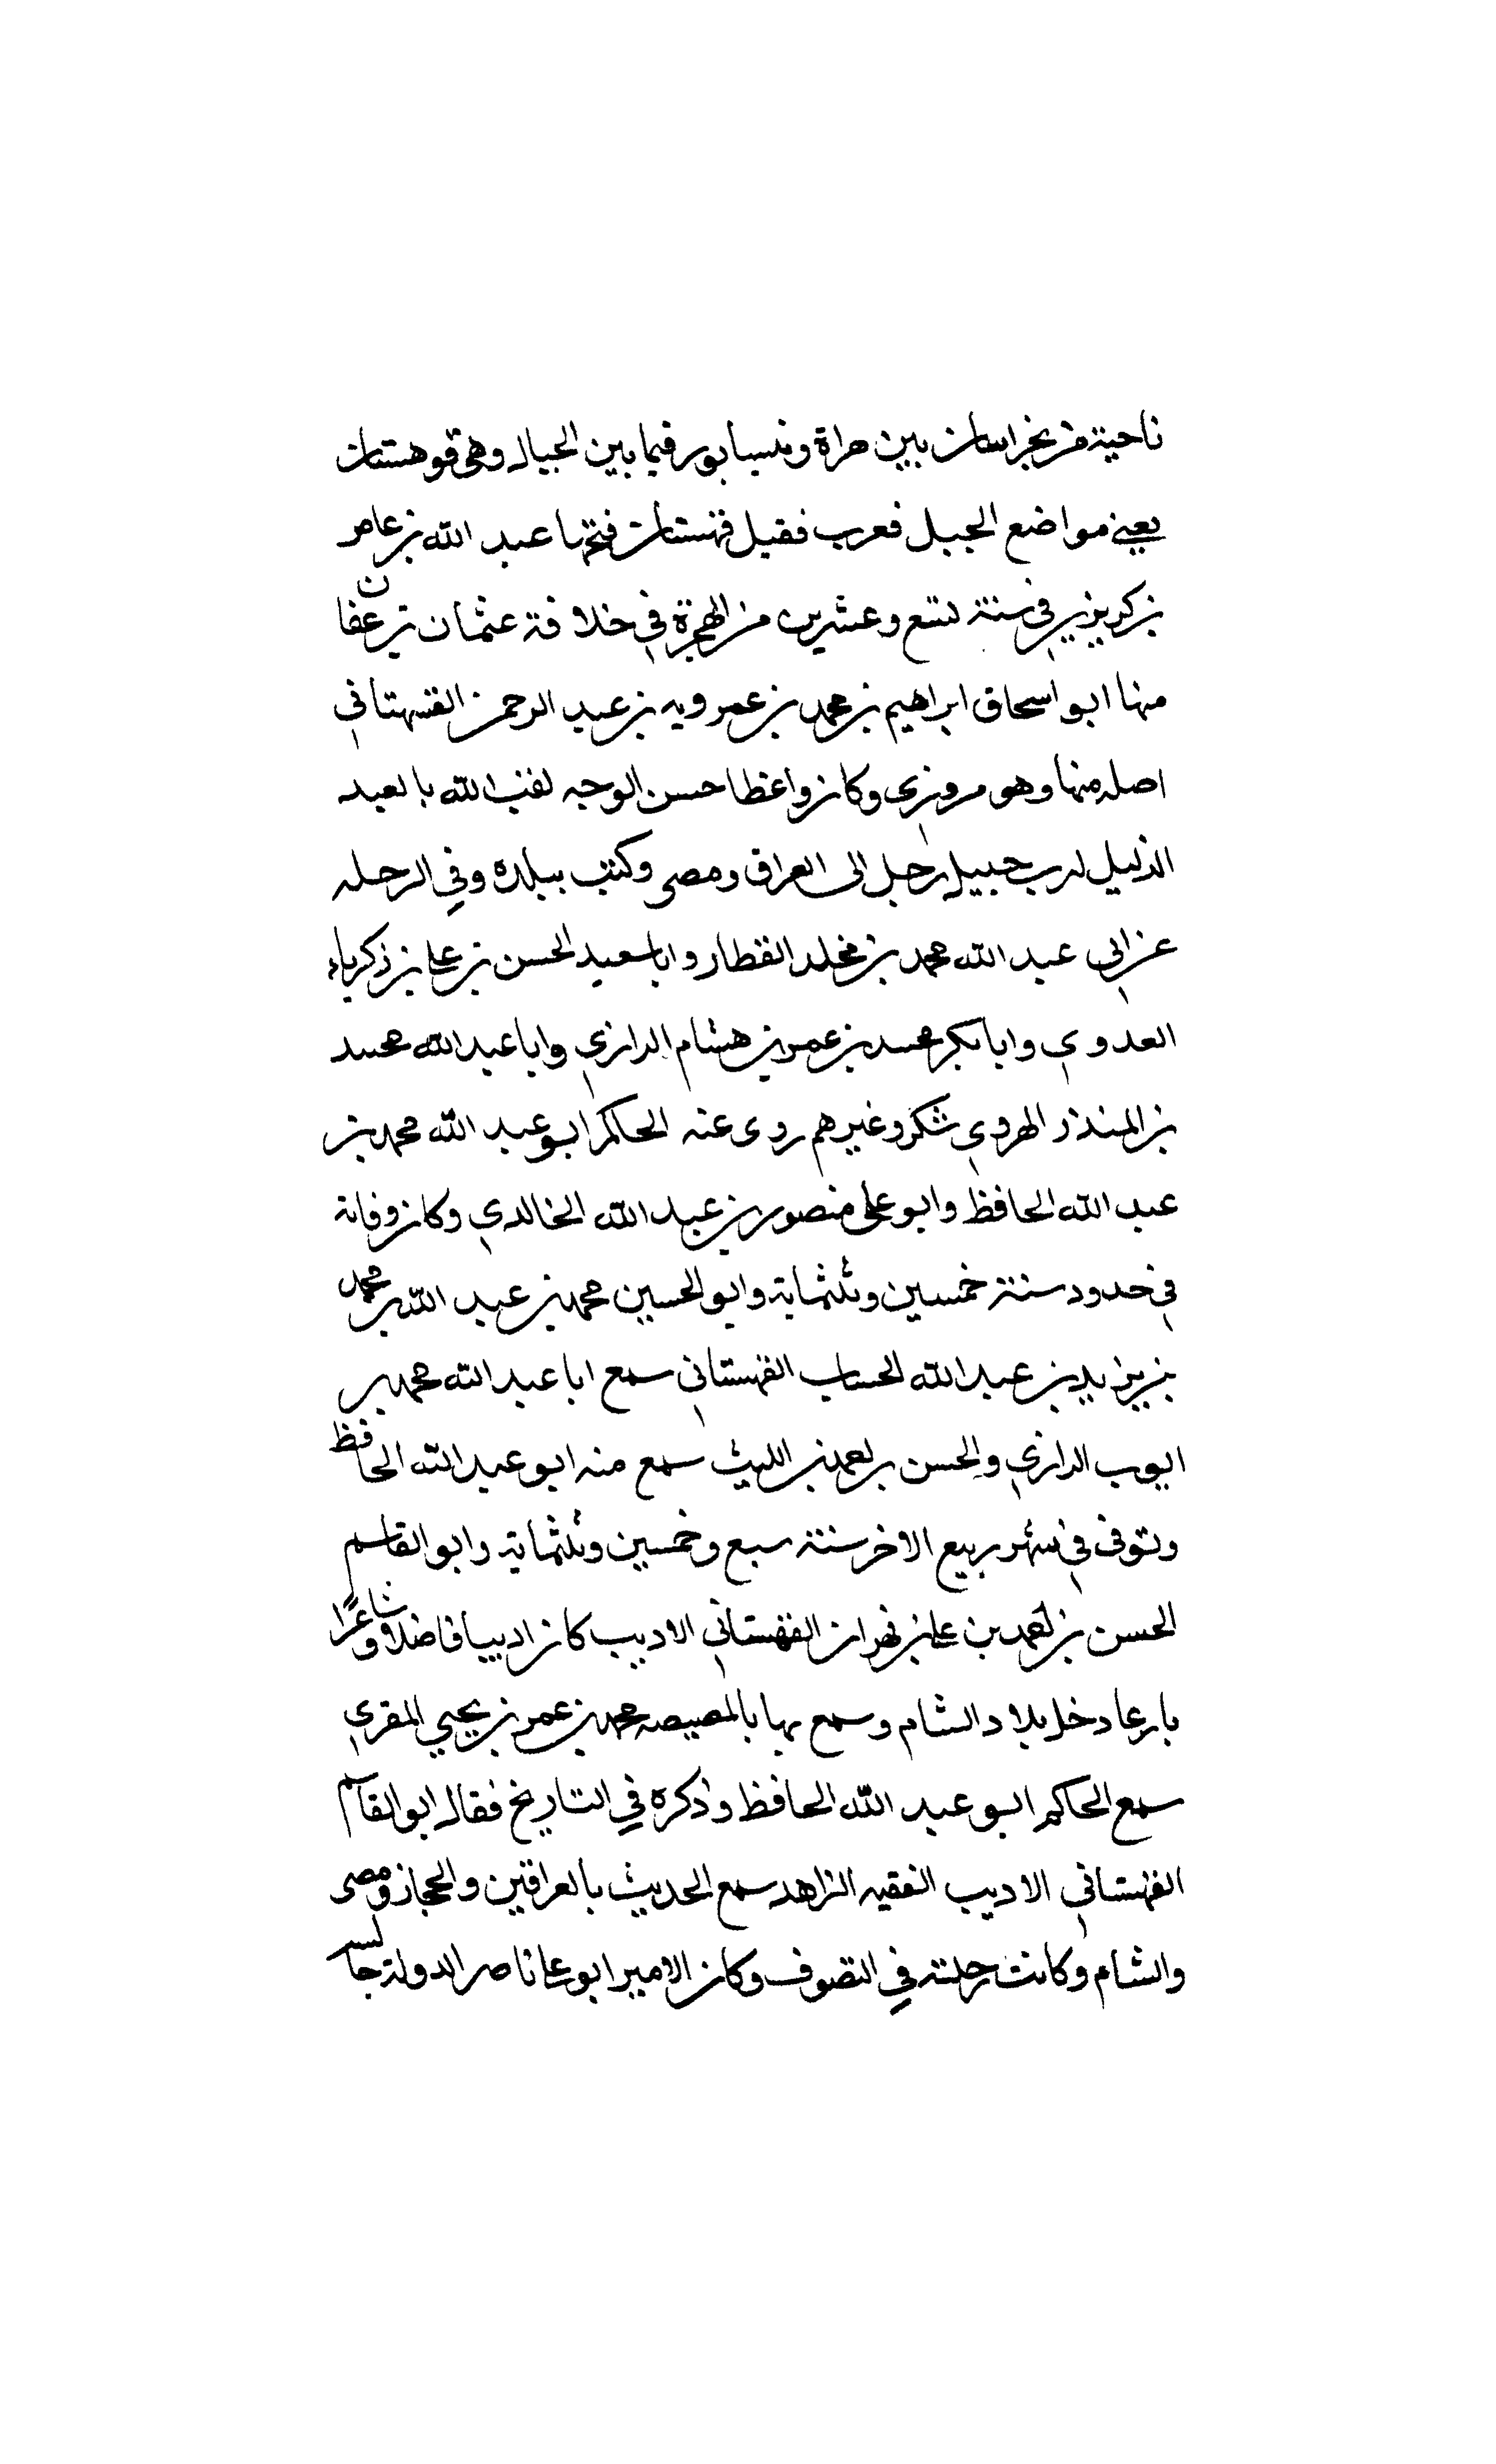 ناحية من بخراسان بين هراة ونيسابور فيما بين الجبال وهي قوهستان
يعني مواضع الجبل فعرب فقيل قهستان فتحها عبد الله بن عامر
بن كريز في سنة تسع وعشرين من الهجرة في خلافة عثمان بن عفان
منها ابو اسحاق ابراهيم بن محمد بن عمرويه بن عبد الرحمن القهستاني
اصله منها وهو مروزي وكان واعظا حسن الوجه لقب الله بالعبد
الذليل لرب جليل رحل الى العراق ومصر وكتب ببلده وفي الرحله
عن ابي عبد الله محمد بن مخلد القطار وابا سعيد الحسن بن علي بن زكرياء
العدوي وابا بكر محمد بن عمر بن هشام الرازي وابا عبد الله محمد
بن المنذر الهروي شكر وغيرهم روى عنه الحاكم ابو عبد الله محمد بن
عبد الله الحافظ وابو على منصور بن عبد الله الخالدي وكان وفاته
في حدود سنة خمسين وثلثماية وابو الحسين محمد بن عبد الله بن محمد
بن يزيد بن عبد الله الحساب القهستاني سمع ابا عبد الله محمد بن
ايوب الرازي والحسن بن احمد بن الليث سمع منه ابو عبد الله الحافظ
وتوفى في شهر ربيع الاخر سنة سبع وخمسين وثلثماية وابو القاسم
الحسن بن احمد بن علي بن مهران القهستاني الاديب كان اديبا فاضلا وشاعرًا
بارعا دخل بلاد الشام وسمع بها بالمصيصه محمد بن عمر بن يحيي المقري
سمع الحاكم ابو عبد الله الحافظ وذكره في التاريخ فقال ابو القاسم
القهستاني الاديب الفقيه الزاهد سمع الحديث بالعراقين والحجاز ومصر
والشام وكانت رحلته في التصوف وكان الامير ابو علي ناصر الدولة جالسه